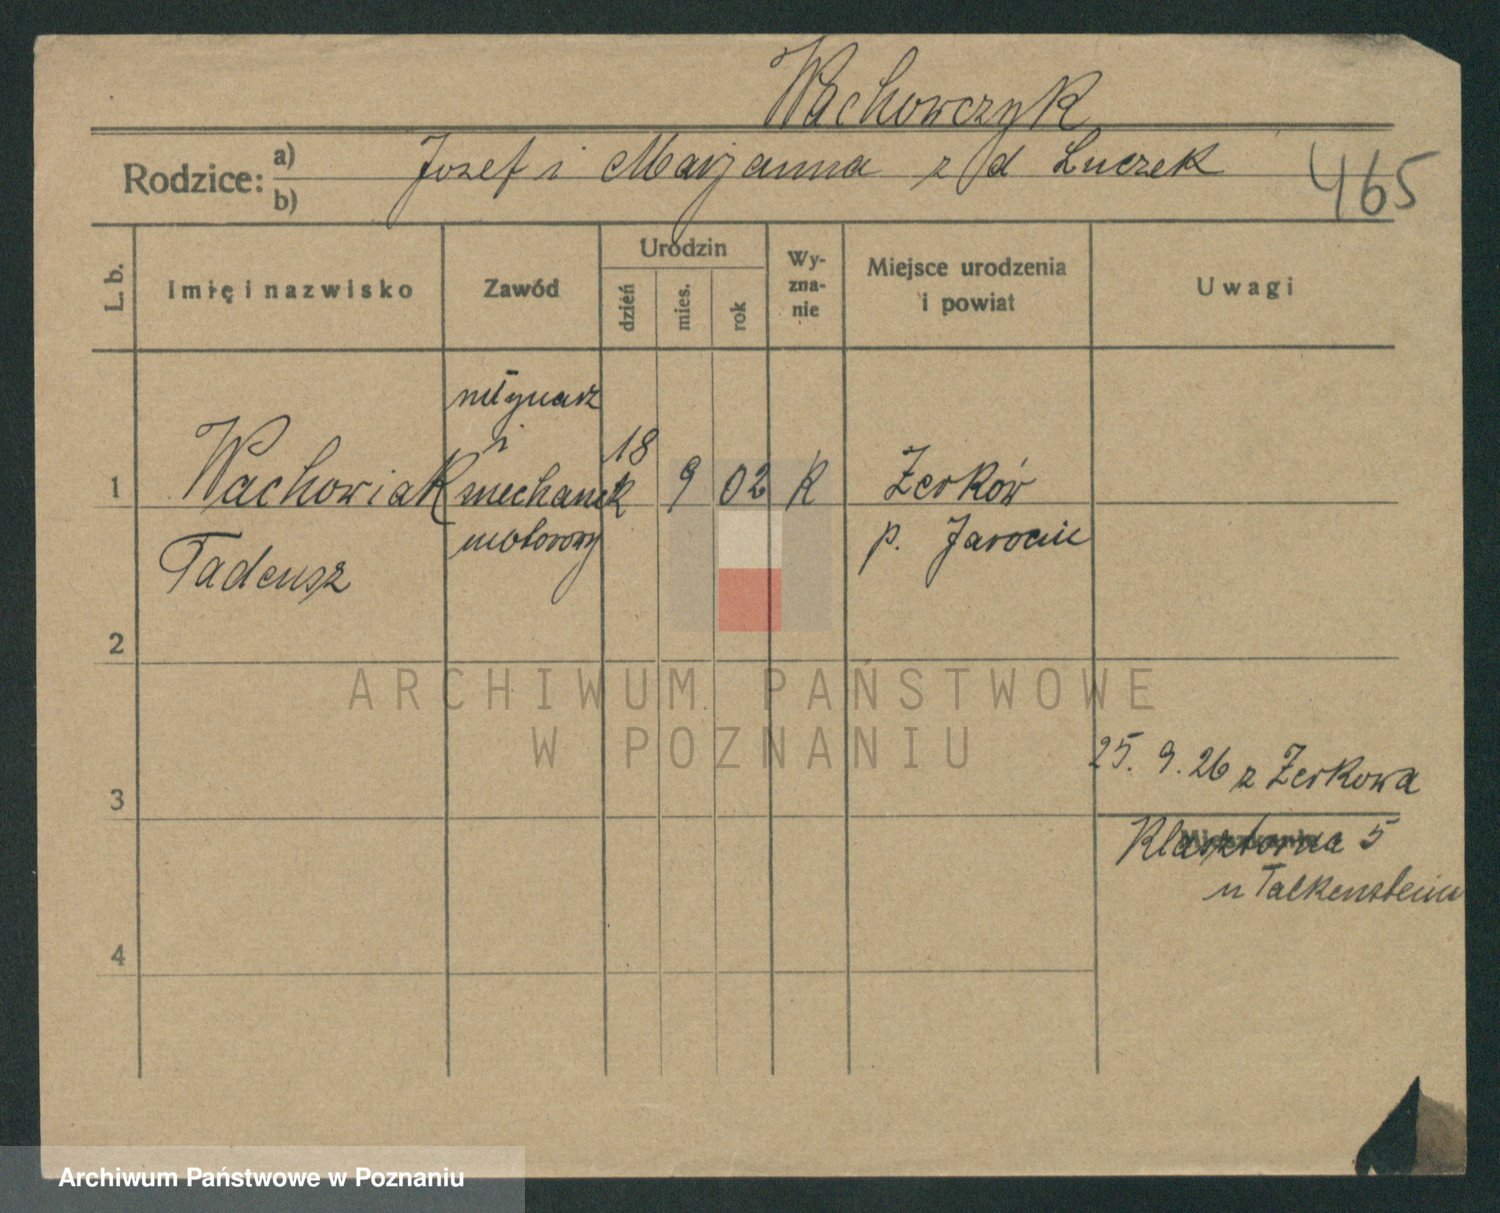 Wachowczyk
Rodzice: a) b)
Jozef i Marjanna z d Łuczek
465
L. b.
Imię i nazwisko
Zawód
Urodzin
dzień
mies.
rok
Wy-
zna-
nie
Miejsce urodzenia
i powiat
Uwagi
młynarz
i
1 Wachowiak mechanik 18 9 02 K Żerków
Tadeusz motorowy p. Jarocin
2
ARCHIWUM PAŃSTWOWE
W POZNANIU
25. 9. 26 z Żerkowa
3
Mieszkanie
Klasztorna 5
u Falkensteina
4
Archiwum Państwowe w Poznaniu